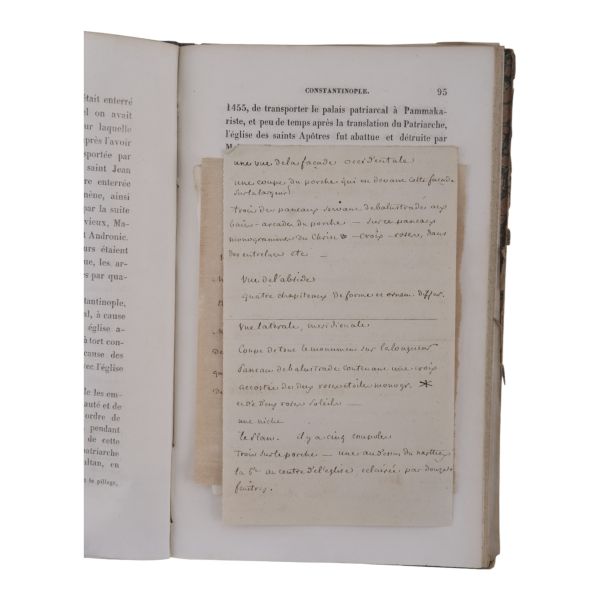 était enterré
el on avait
ur laquelle
près l'avoir
sportée par
saint Jean
re enterrée
mène, ainsi
par la suite
vieux, Ma-
t Andronic.
urs étaient
ue, les ar-
s par qua-
stantinople,
al, à cause
église a-
à tort con-
cause des
vec l'église
le les em-
auté et de
ordre de
pendant
de cette
patriarche
ltan, en
de pillage,
CONSTANTINOPLE. 95
1455, de transporter le palais patriarcal à Pammaka-
riste, et peu de temps après la translation du Patriarche,
l'église des saints Apôtres fut abattue et détruite par
une vue de la façade occidentale
une coupe du porche qui en devance cette façade
sur la largeur
trois des panneaux servant de balustrade aux
baies - arcades du porche - sur ce panneaux
monogramme du Christ - croix - roses, dans
des entrelacs etc -
Vue de l'abside
quatre chapiteaux de forme et ornem. differ.
Vue latérale, méridionale
Coupe de tout le monument sur la longueur
Panneau de balustrade contenant une croix
accostée des deux roses étoile monogr. *
et de deux roses soleils -
une niche
le plan. il y a cinq coupoles
Trois sur le porche - une au dessus du narthex
la 5e au centre de l'église, eclairée par douze
fenêtres.